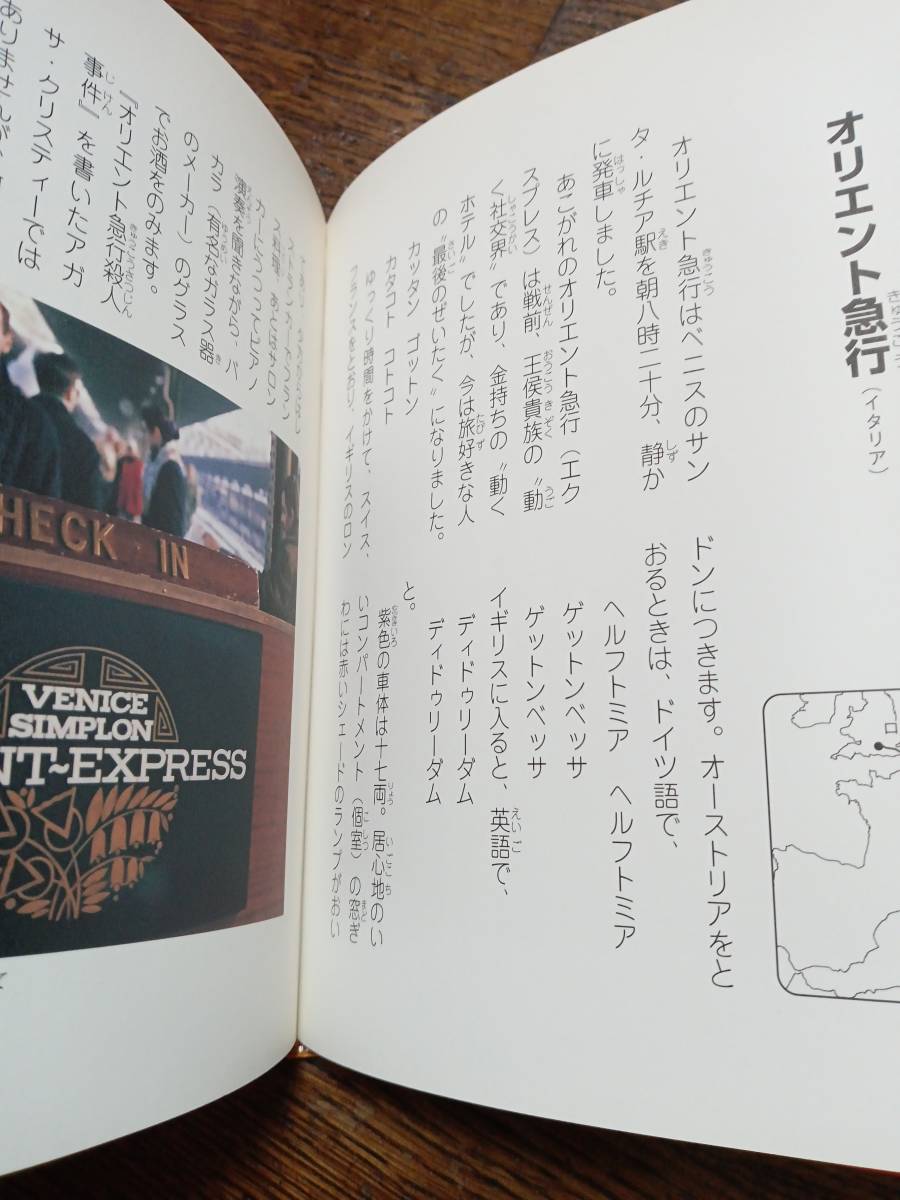 オリエント急行
（イタリア）
オリエント急行はベニスのサン
タ・ルチア駅を朝八時二十分、静か
に発車しました。
あこがれのオリエント急行（エク
スプレス）は戦前、王侯貴族の〝動
く社交界〟であり、金持ちの〝動く
ホテル〟でしたが、今は旅好きな人
の〝最後のぜいたく〟になりました。
カッタン　ゴットン
カタコト　コトコト
ゆっくり時間をかけて、スイス、
フランスをとおり、イギリスのロン
ドンにつきます。オーストリアをと
おるときは、ドイツ語で、
ヘルフトミア　ヘルフトミア
ゲットンベッサ
ゲットンベッサ
イギリスに入ると、英語で、
ディドゥリーダム
ディドゥリーダム
と。
紫色の車体は十七両。居心地のい
いコンパートメント（個室）の窓ぎ
わには赤いシェードのランプがおい
カーにうつってピアノ
演奏を聞きながら、バ
カラ（有名なガラス器
のメーカー）のグラス
でお酒をのみます。
『オリエント急行殺人
事件』を書いたアガ
サ・クリスティーでは
ありませんが、
HECK · IN
VENICE
SIMPLON
NT~EXPRESS